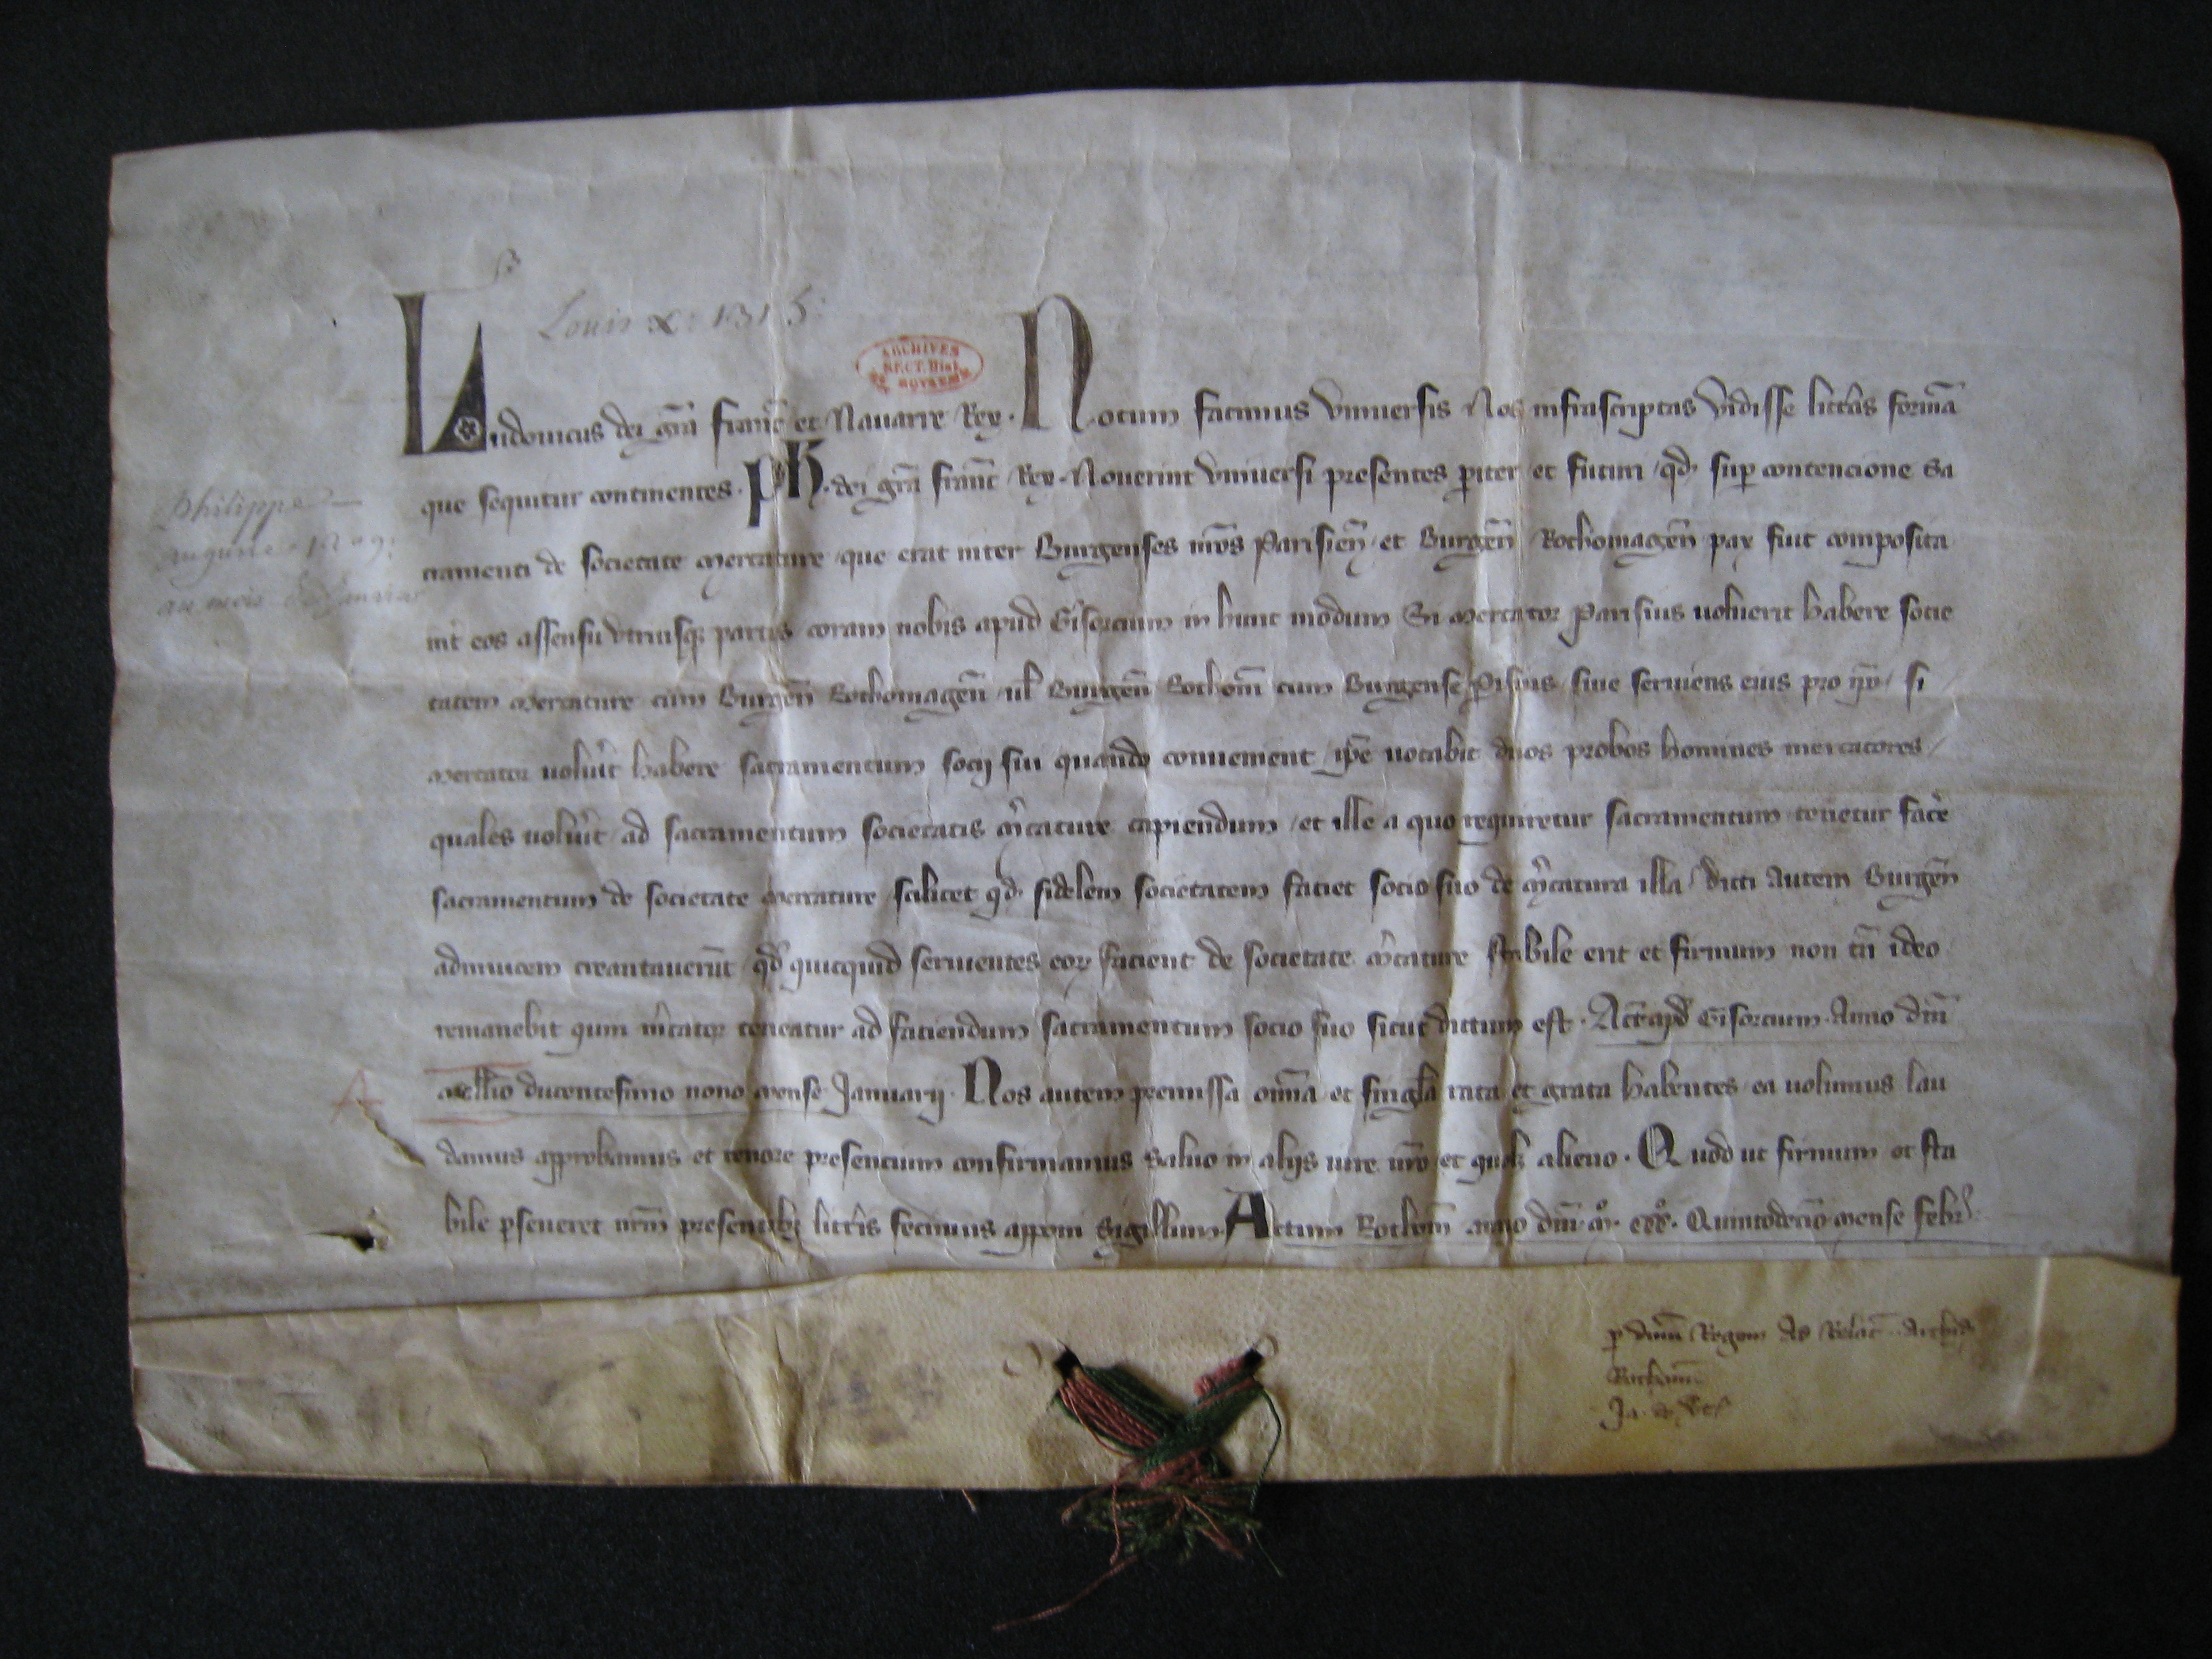 Louis X. 1315
ARCHIVES
Ludovicus dei gr̃a franc̃ et Navarre Rex. Notum facimus universis Nos infrascriptas vidisse litt̃as formã
que sequitur continentes. Ph. dei gr̃a franc̃ Rex. Noverint universi presentes pariter et futuri qd̃ sup̃ contencione Sa
Philippe
auguste 1209.
au mois de Janvier
cramenti de societate mercature que erat inter Burgenses nr̃os Parisieñ et Burgeñ Rothomageñ pax fuit composita
int̃ eos assensu utriusq; partis coram nobis apud Gisorcium in hunc modum Si mercator Parisius voluerit habere socie
tatem mercature cum Burgeñ Rothomageñ vl̃ Burgeñ Rothom̃ cum Burgense Pisius sive serviens eius pro ip̃o si
mercator voluĩt habere sacramentum socij sui quando convenient ip̃e vocabit duos probos homines mercatores
quales voluĩt ad sacramentum societatis m̃cature capiendum et ille a quo requiretur sacramentum tenetur facẽ
sacramentum de societate mercature scilicet qd̃ fidelem societatem faciet socio suo de m̃catura illa dicti autem Burgeñ
adinvicem creantaverũt qd̃ quicquid servientes eoꝝ facient de societate m̃cature stabile erit et firmum non tñ ideo
remanebit quin m̃cator teneatur ad faciendum sacramentum socio suo sicut dictum est. Act̃ apd̃ Gisorcium Anno dñi
A mill̃io ducentesimo nono mense Januarij. Nos autem premissa om̃ia et singl̃a rata et grata habentes ea volumus lau
damus approbamus et tenore presencium confirmamus salvo in alijs iure nr̃o et quol̃z alieno. Quod ut firmum et sta
bile p̱severet nr̃m presentibꝫ litt̃is fecimus apponi sigillum. Actum Rothom̃ anno dñi mº. cccº. Quintodecĩo mense febr̃
p̱ dñm Regem ad Relac̃. Archiep̃i
Rothom̃
Ja. de